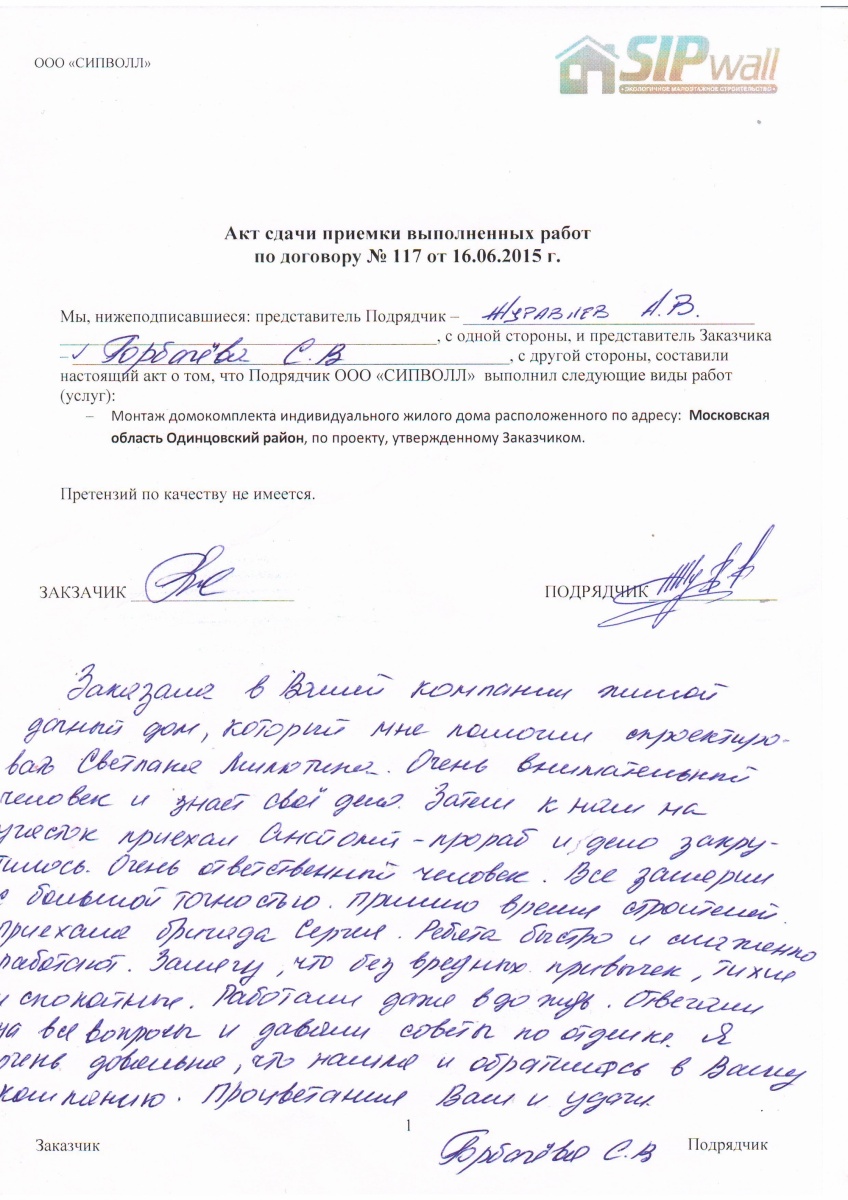 ООО «СИПВОЛЛ»
SIPwall
• ЭКОЛОГИЧНОЕ МАЛОЭТАЖНОЕ СТРОИТЕЛЬСТВО •
Акт сдачи приемки выполненных работ
по договору № 117 от 16.06.2015 г.
Мы, нижеподписавшиеся: представитель Подрядчик – Журавлев А.В.
, с одной стороны, и представитель Заказчика
– Горбачёва С.В , с другой стороны, составили
настоящий акт о том, что Подрядчик ООО «СИПВОЛЛ» выполнил следующие виды работ
(услуг):
– Монтаж домокомплекта индивидуального жилого дома расположенного по адресу: Московская
область Одинцовский район, по проекту, утвержденному Заказчиком.
Претензий по качеству не имеется.
ЗАКЗАЧИК ПОДРЯДЧИК
Заказала в Вашей компании жилой
дачный дом, который мне помогли спроектиро-
вать Светлана Милютина. Очень внимательный
человек и знает своё дело. Затем к нам на
участок приехал Анатолий - прораб и дело закру-
тилось. Очень ответственный человек. Все замерил
с большой точностью. Пришло время строителей.
приехала бригада Сергея. Ребята быстро и слаженно
работают. Замечу, что без вредных привычек, тихие
и спокойные. Работали даже в дождь. Отвечали
на все вопросы и давали советы по отделке. Я
очень довольна, что нашла и обратилась в Вашу
компанию. Процветания Вам и удачи.
1
Заказчик Горбачёва С.В Подрядчик